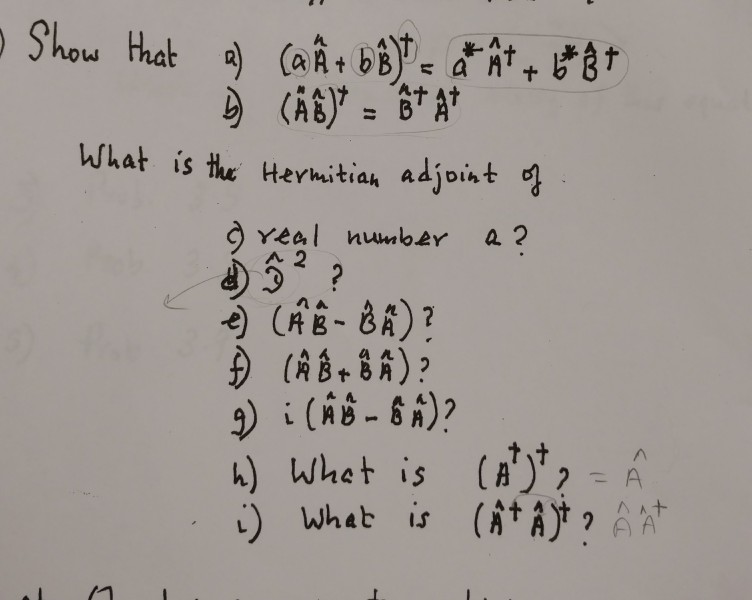 ) Show that a) (aÂ + bB̂)† = a* Â† + b* B̂†
b) (ÂB̂)† = B̂† Â†
What is the Hermitian adjoint of
c) real number a?
d) D̂² ?
e) (ÂB̂ - B̂Â)?
f) (ÂB̂ + B̂Â)?
g) i (ÂB̂ - B̂Â)?
h) What is (A†)† ? = Â
i) What is (Â† Â)† ? Â Â†